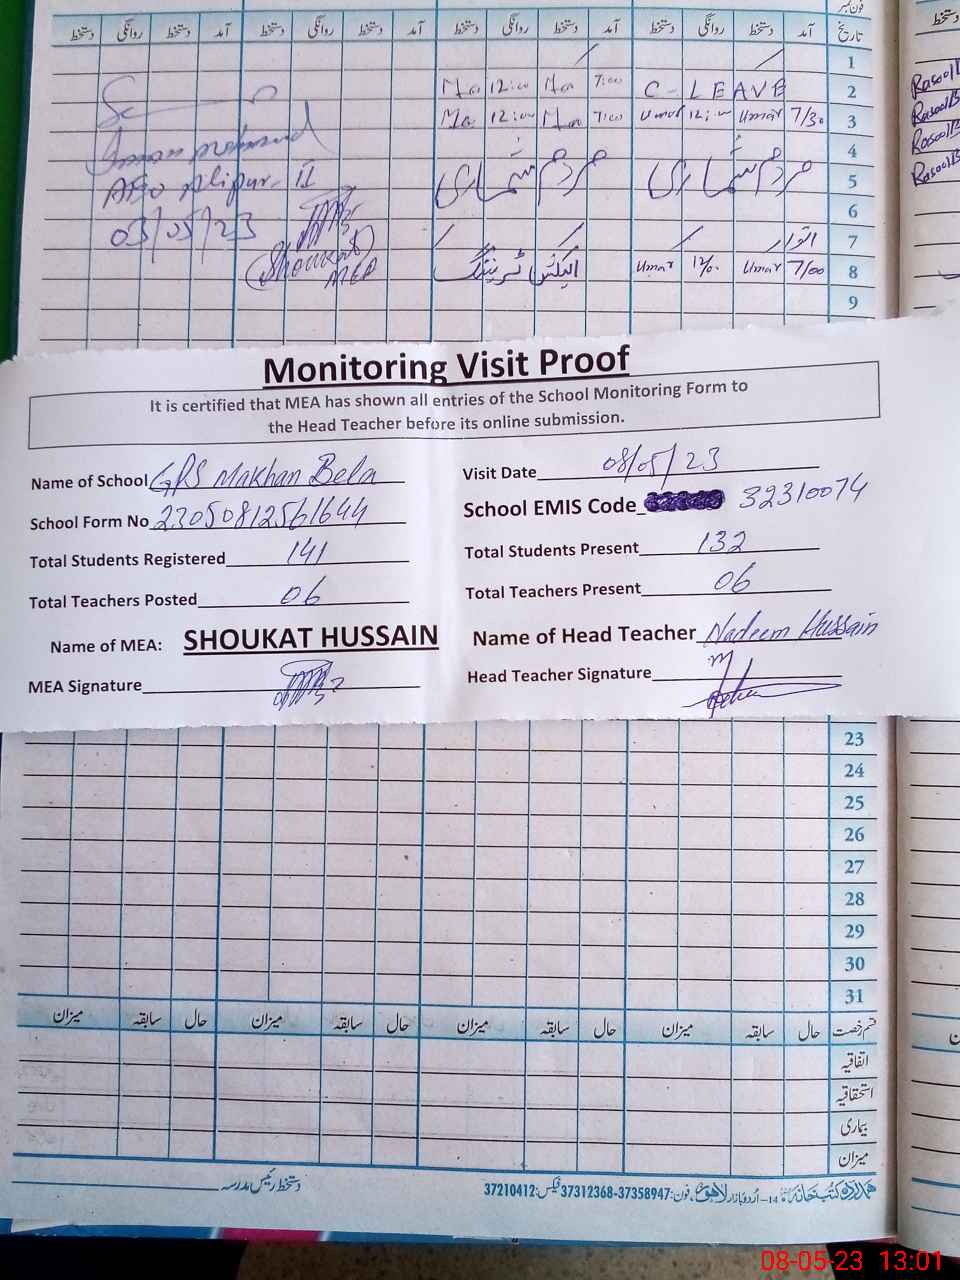 فون نمبر
تاریخ آمد دستخط روانگی دستخط آمد دستخط روانگی دستخط آمد دستخط روانگی دستخط آمد دستخط روانگی دستخط
1
2 C-LEAVE 7:00 12:00
3 7/30 Umar 12:00 Umar 7:00 12:00
4
5 مردم شماری مردم شماری
6
7 اتوار
8 7/00 Umar 12/0. Umar الیکشن ٹریننگ
9
AEO Alipur-II
03/05/23
Shoukat
MEA
Monitoring Visit Proof
It is certified that MEA has shown all entries of the School Monitoring Form to
the Head Teacher before its online submission.
Name of School GPS Makhan Bela Visit Date 08/05/23
School Form No 23050812561644 School EMIS Code 32310074
Total Students Registered 141 Total Students Present 132
Total Teachers Posted 06 Total Teachers Present 06
Name of MEA: SHOUKAT HUSSAIN Name of Head Teacher Nadeem Hussain
MEA Signature Head Teacher Signature
23
24
25
26
27
28
29
30
31
قسم رخصت حال سابقہ میزان حال سابقہ میزان حال سابقہ میزان حال سابقہ میزان
اتفاقیہ
استحقاقیہ
بیماری
میزان
ہمدرد کتب خانہ 14-اُردو بازار لاہور، فون: 37358947-37312368 فیکس: 37210412 دستخط رئیس مدرسہ
08-05-23 13:01